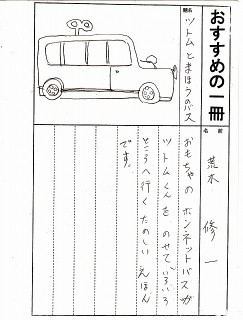 おすすめの一冊
題名
ツトムとまほうのバス
名前
荒木 修一
おもちゃの ボンネットバスが
ツトムくんを のせて、いろいろ
ところへ行く たのしい えほん
です。